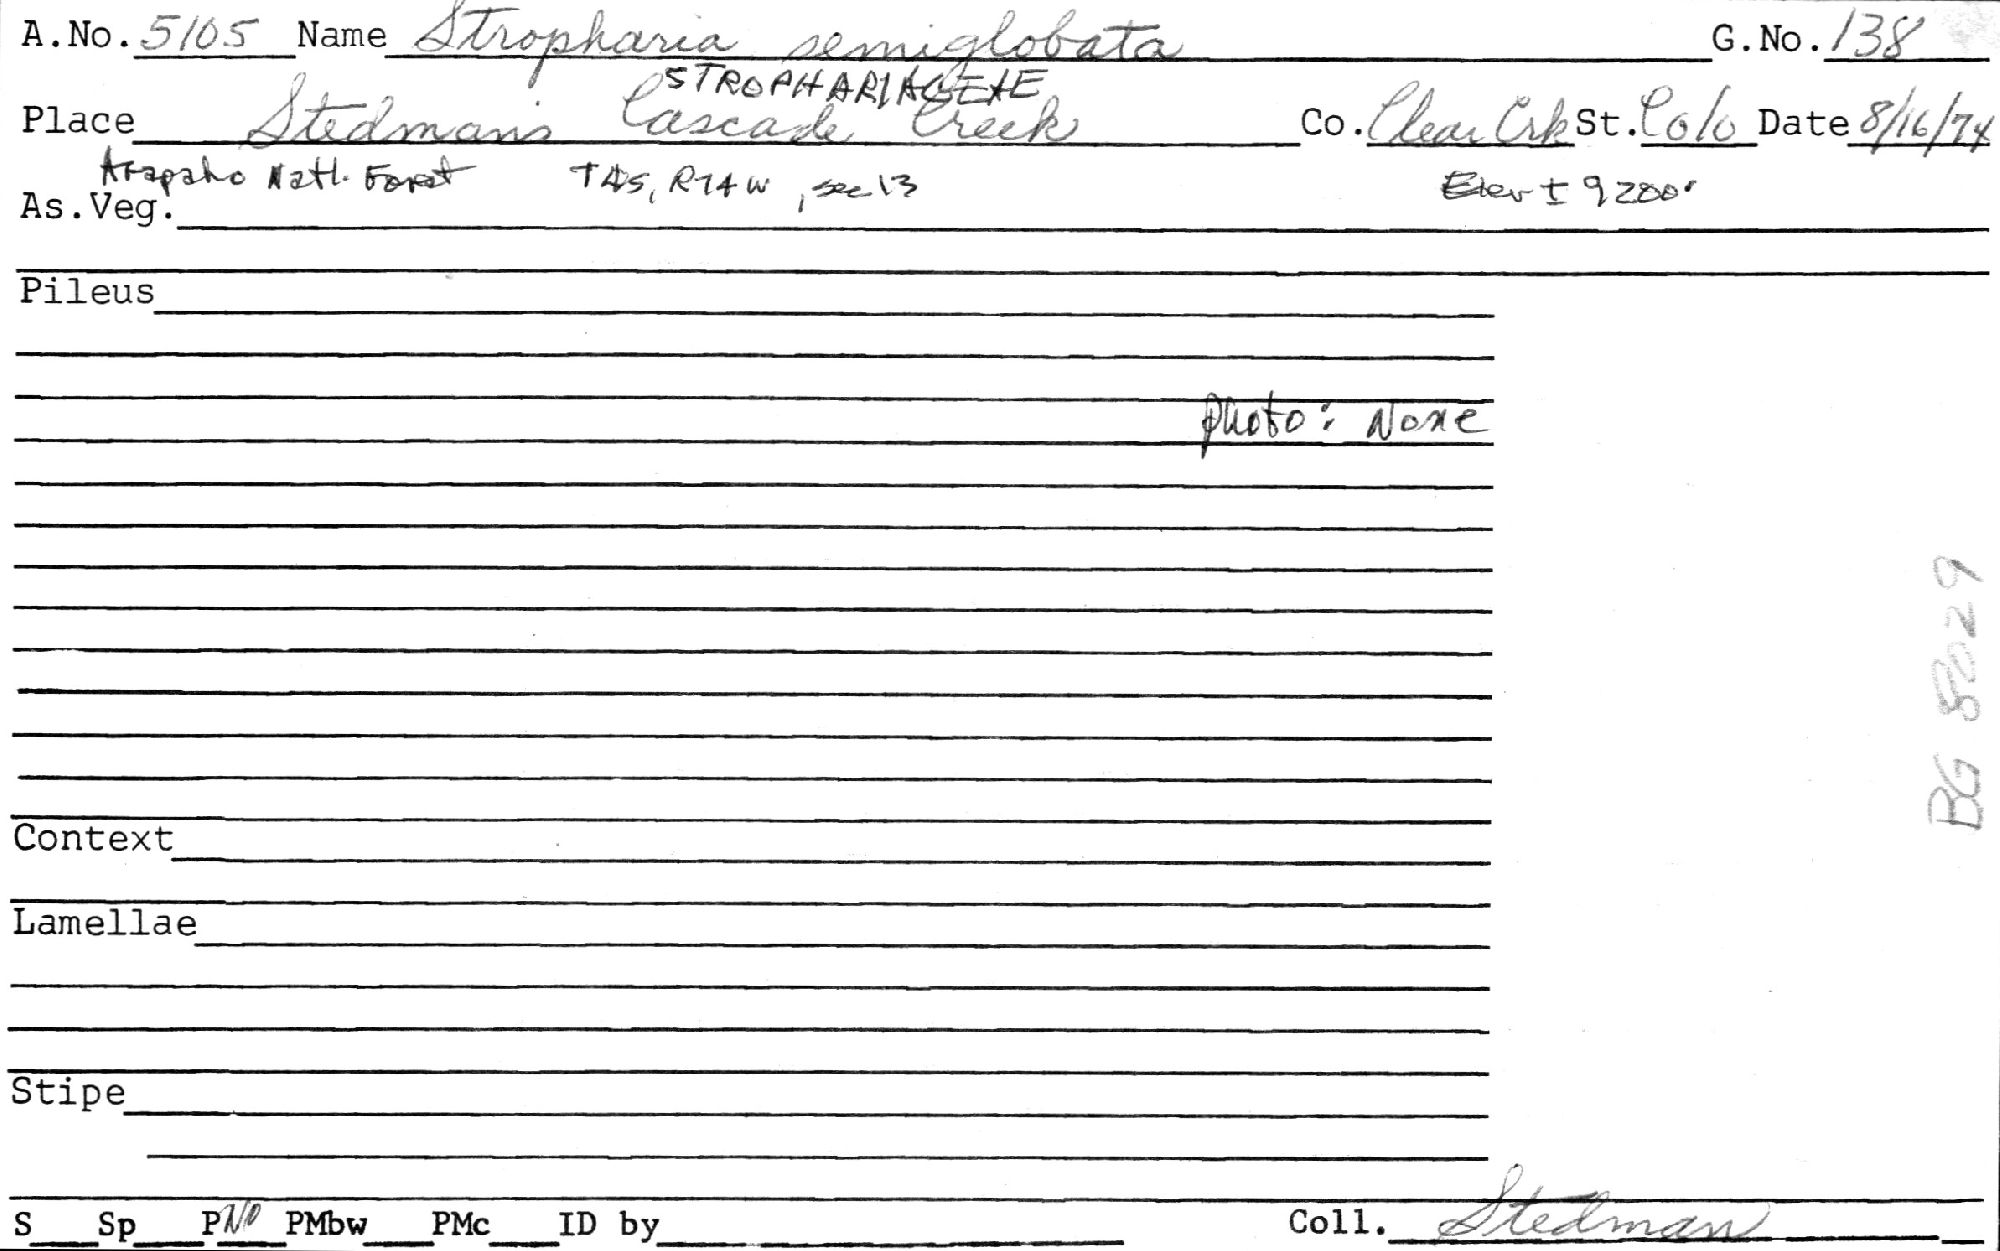 A.No. 5105 Name Stropharia semiglobata G.No. 138
STROPHARIACEAE
Place Stedmans Cascade Creek Co. Clear Crk St. Colo Date 8/16/74
Arapaho Natl. Forest T4s, R74W, sec 13 Elev ± 9200'
As.Veg.
Pileus
photo: None
BG 8029
Context
Lamellae
Stipe
S Sp P NO PMbw PMc ID by Coll. Stedman